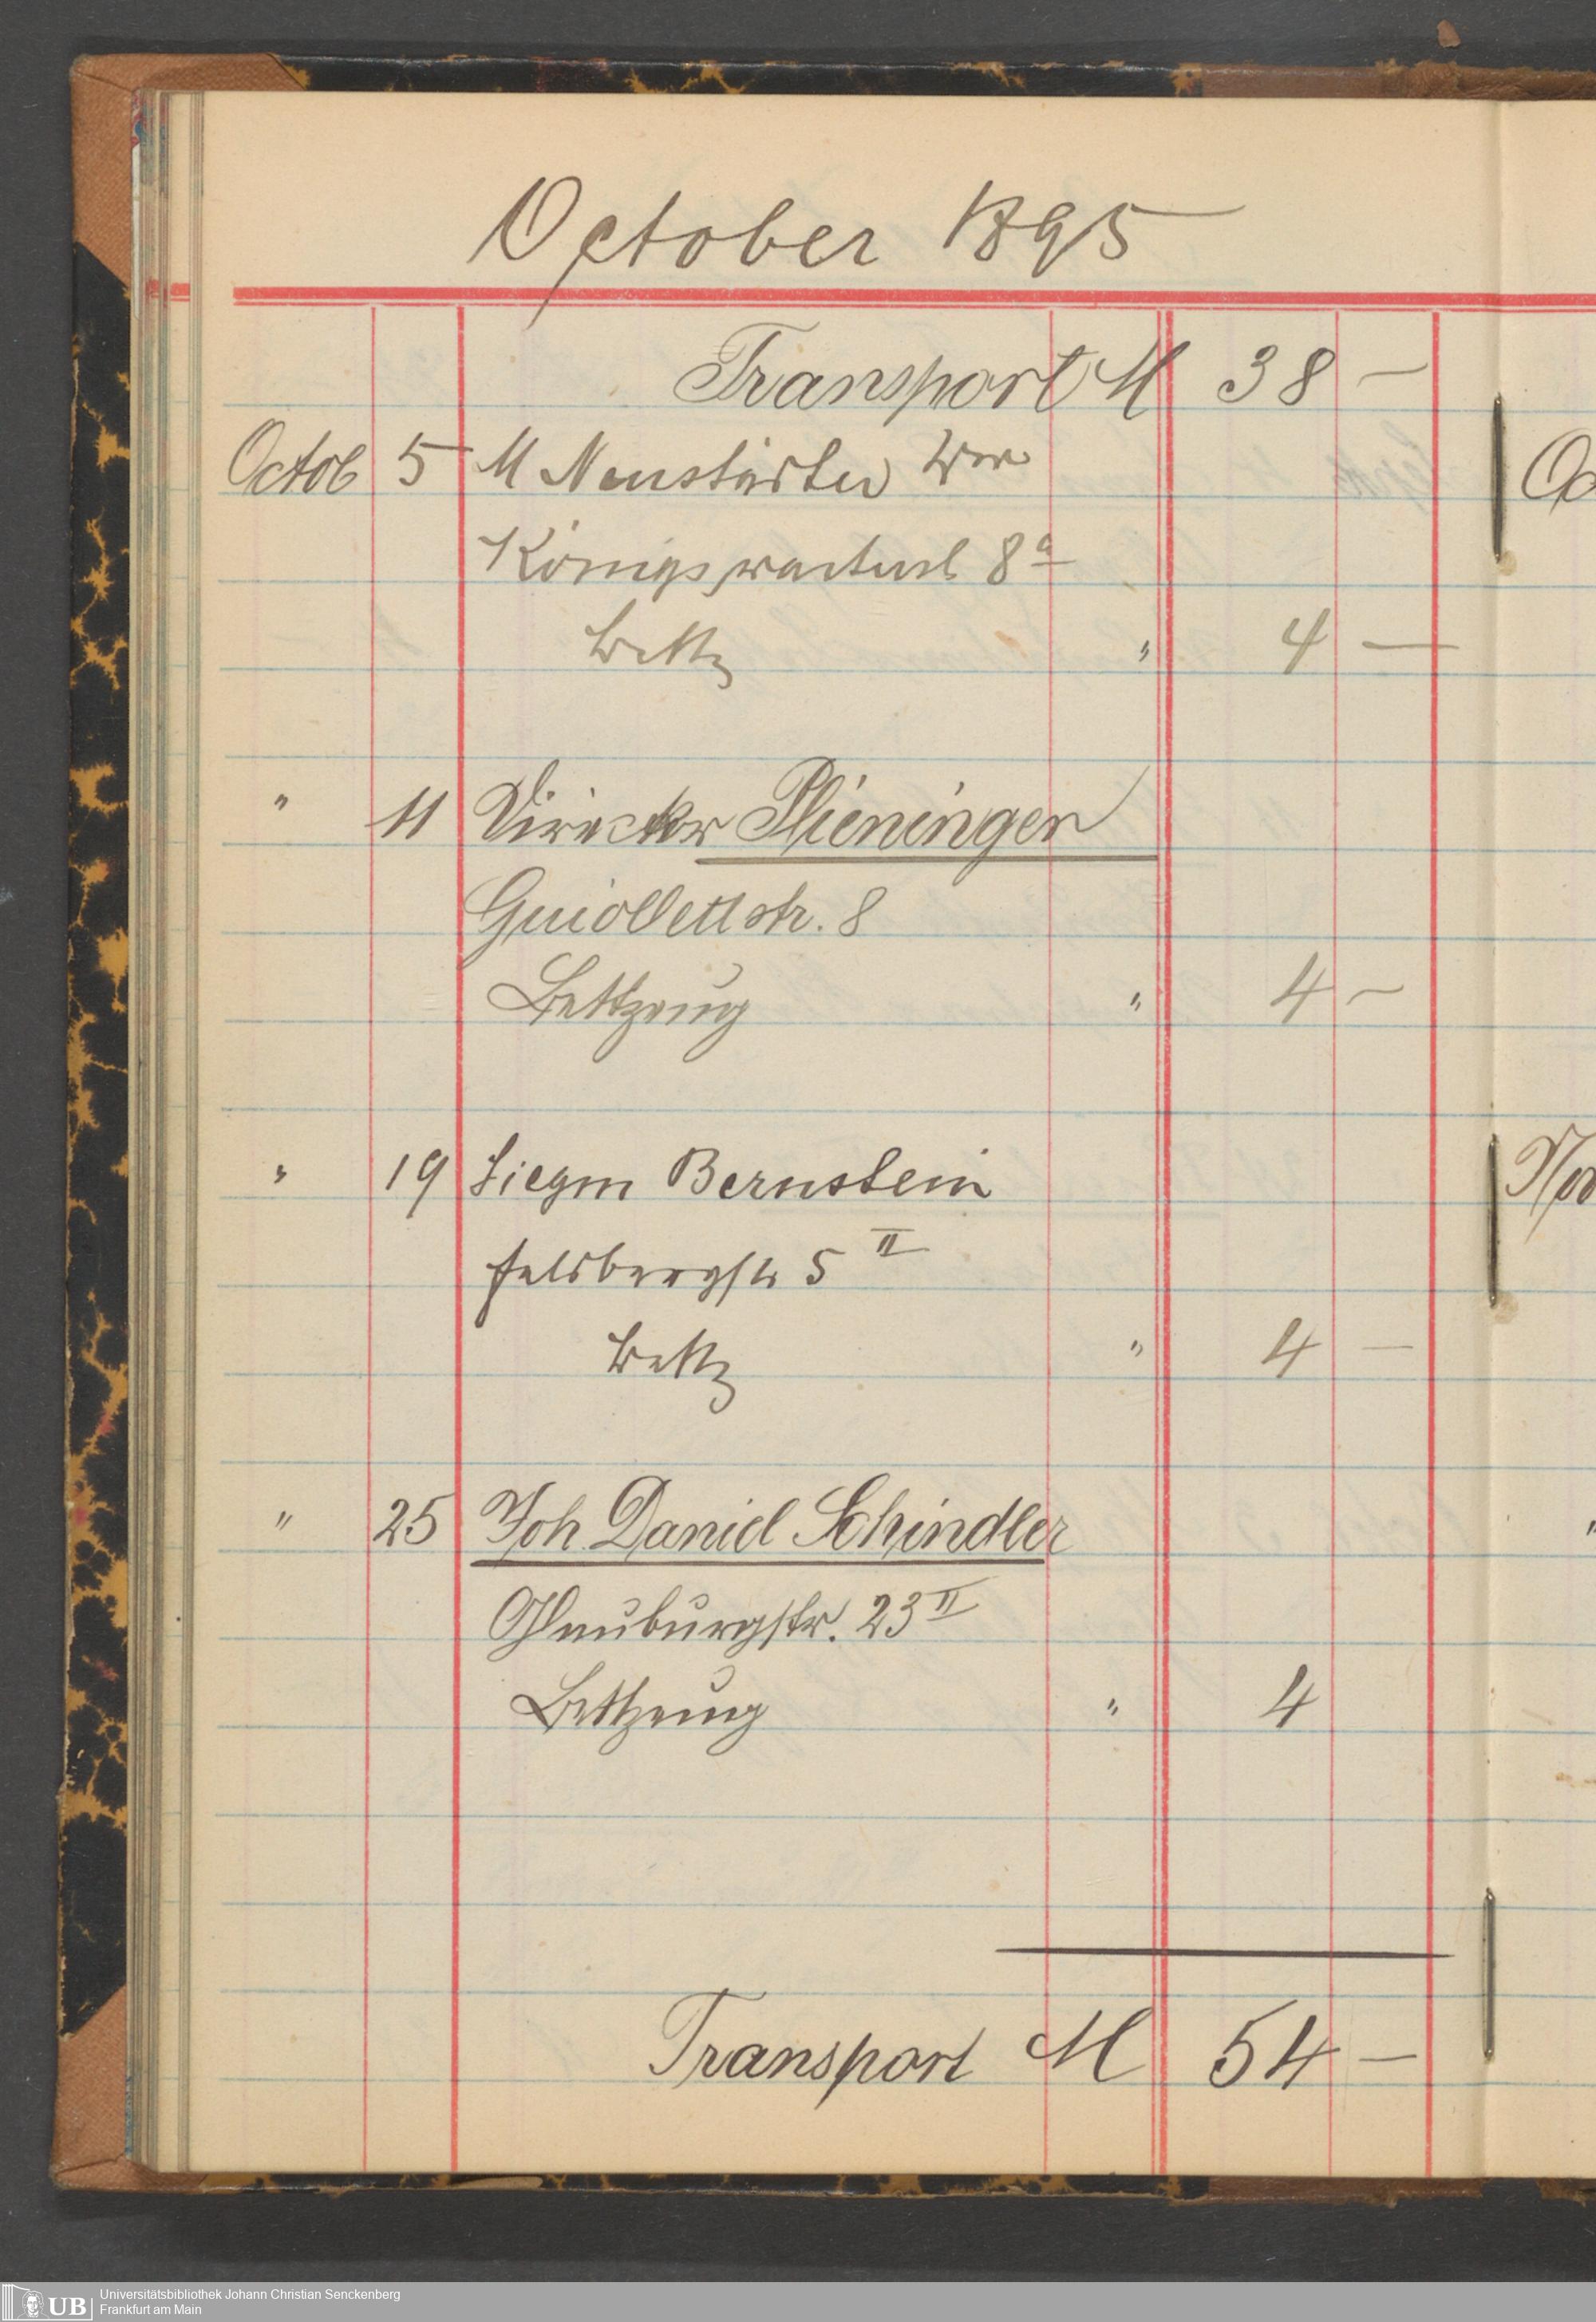 October 1895
Transport M 38 —
Octob 5 M Neustädter Wwe
Königswarterst 8a
Bettz " 4 —
" 11 Director Plieninger
Guiollettstr. 8
Bettzeug " 4 —
" 19 Siegm Bernstein
Falsbergstr 5 II
Bettz " 4 —
" 25 Joh Daniel Schindler
Glauburgstr. 23 II
Bettzeug " 4
Transport M 54 —
UB Universitätsbibliothek Johann Christian Senckenberg
Frankfurt am Main